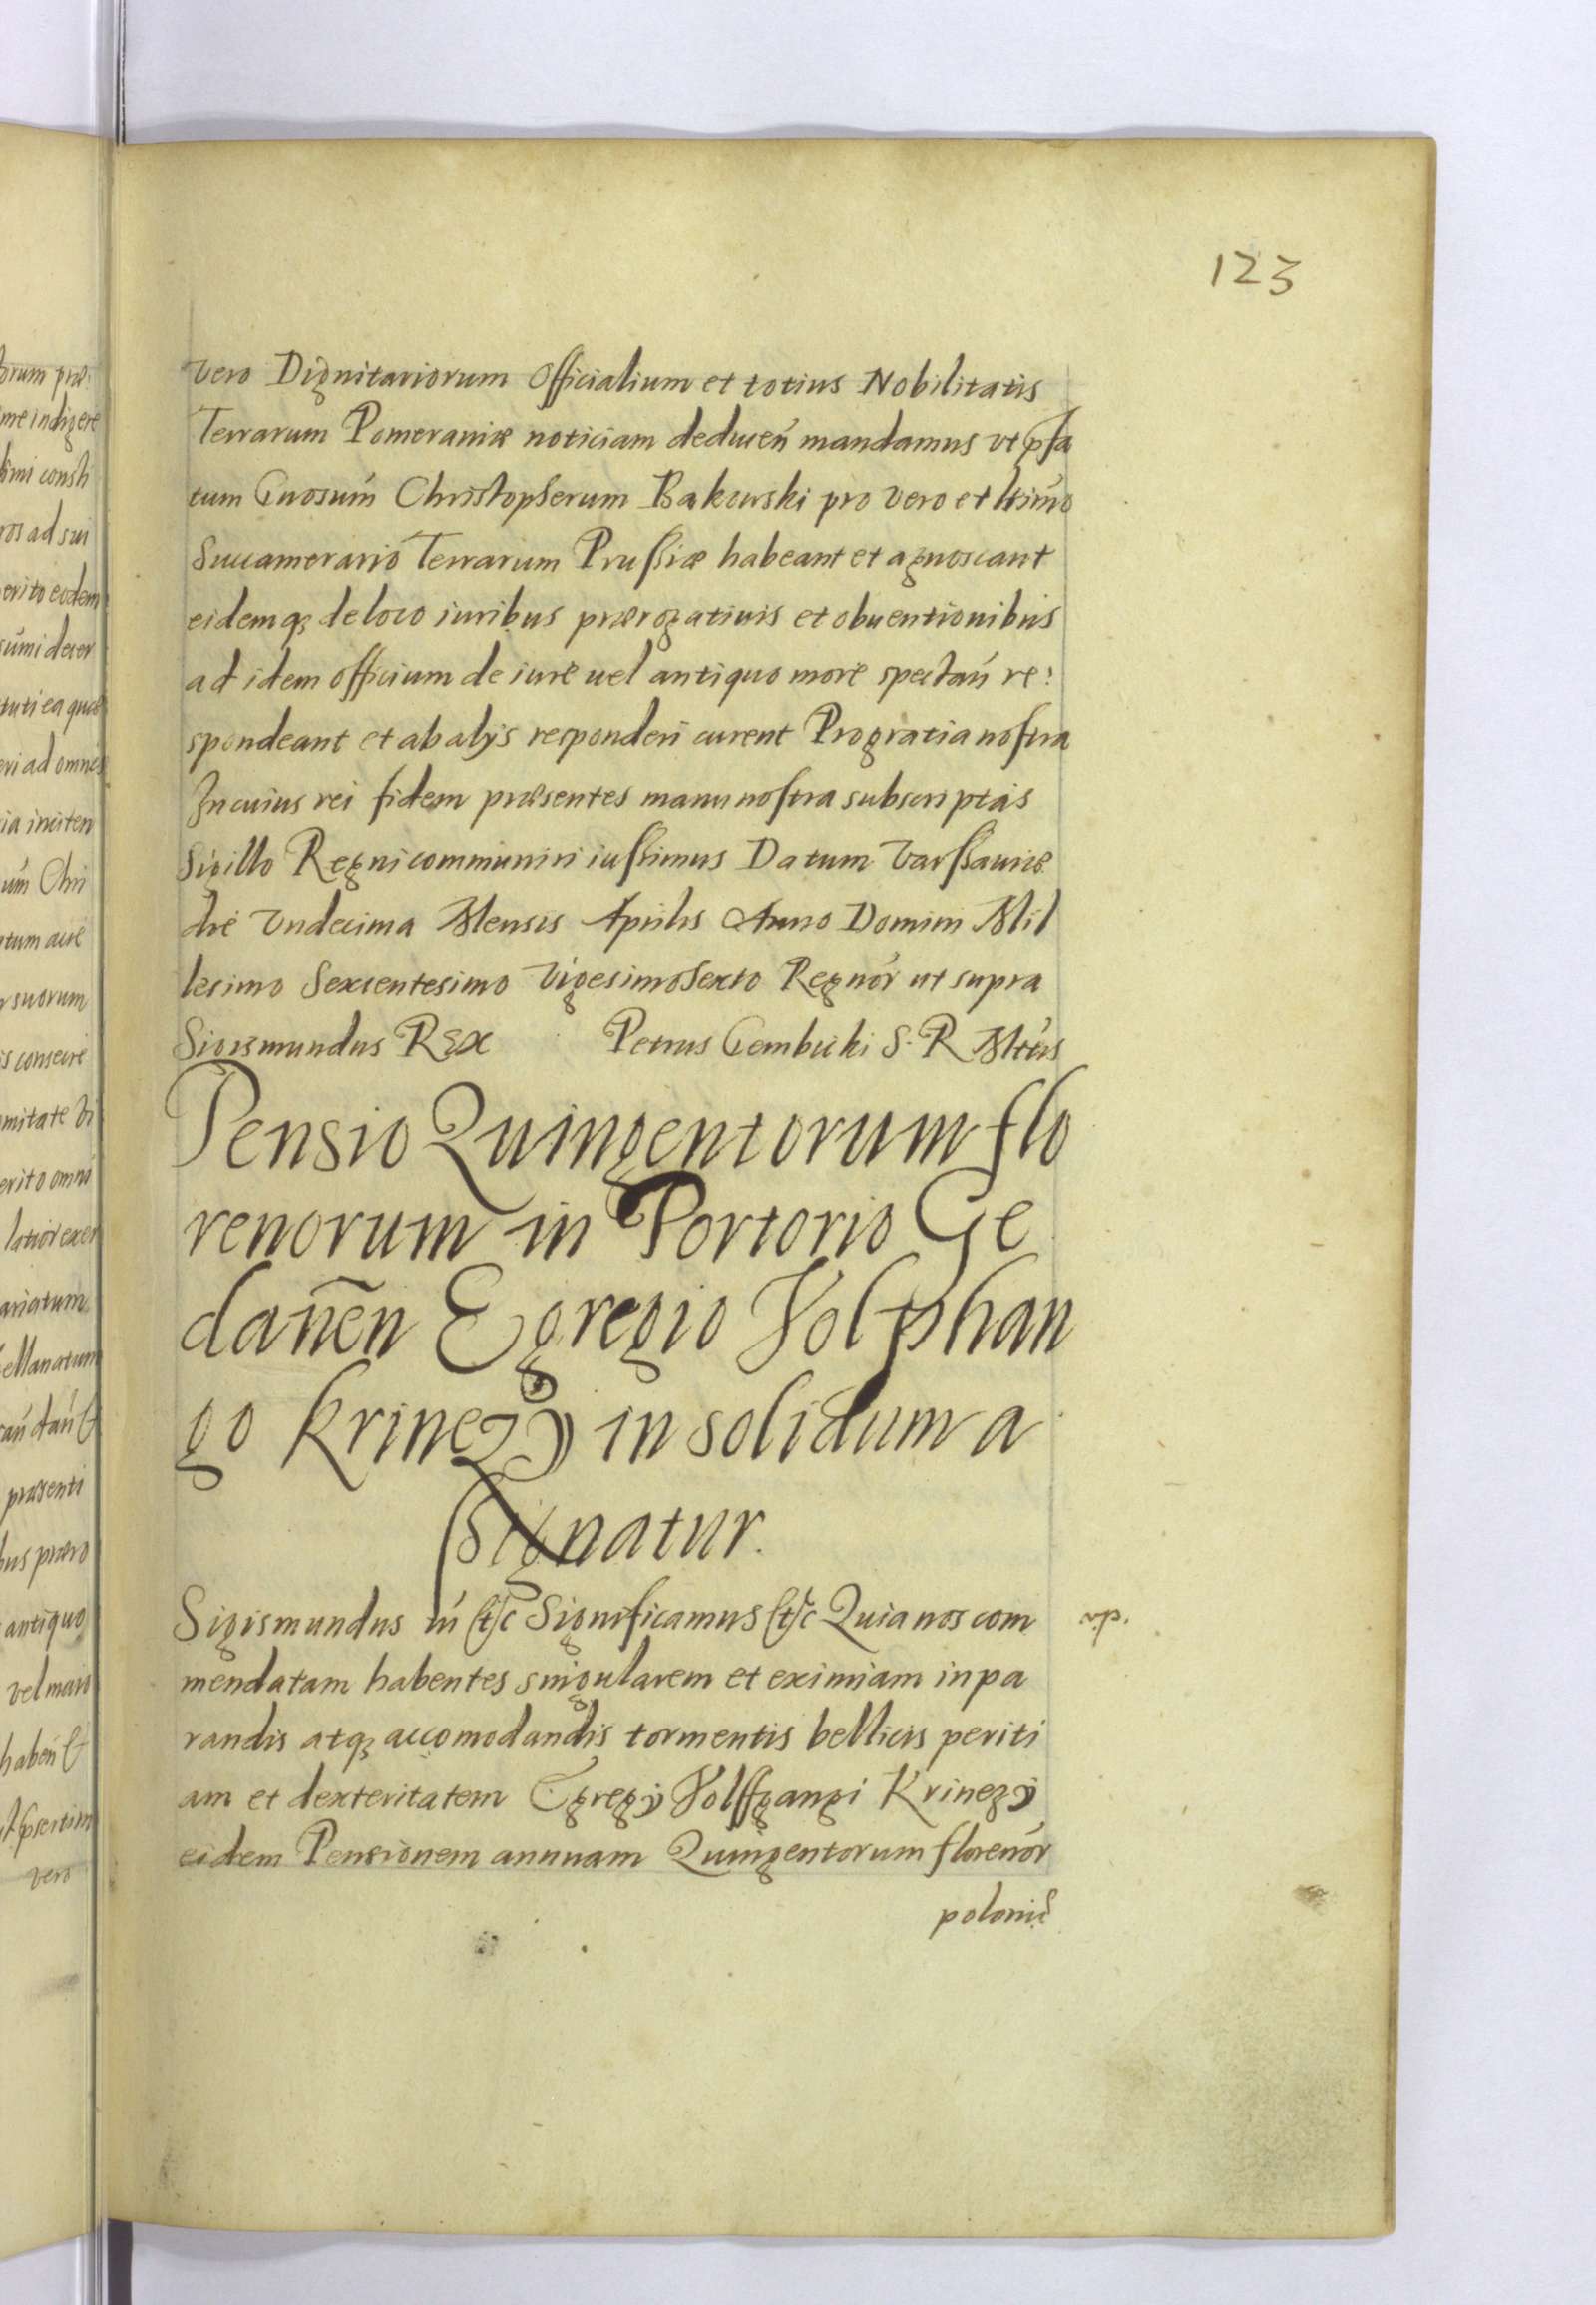 123
vero Dignitariorum Officialium et totius Nobilitatis
Terrarum Pomeraniæ noticiam deducen̄ mandamus vt p̄fa
tum Gnosum̄ Christopherum Bakowski pro vero et ltimo
Succamerario Terrarum Prussiæ habeant et agnoscant
eidemq₃ de loco iuribus prærogatiuis et obuentionibus
ad idem officium de iure uel antiquo more spectan̄ re:
spondeant et ab alijs responderi curent Pro gratia nostra
In cuius rei fidem præsentes manu nostra subscriptas
Sigillo Regni communiri iussimus Datum Varssauiæ
die Vndecima Mensis Aprilis Anno Domini Mil
lesimo Sexcentesimo Vigesimo Sexto Regnor̄ ut supra
Sigismundus Rex Petrus Gembicki S. R. Mttis
Pensio Quingentorum flo
renorum in Portorio Ge
danēn Egregio Volphan
go Krinezÿ in solidum a
ssignatur.
Sigismundus ūi etc Significamus etc Quia nos com
mendatam habentes singularem et eximiam in pa
randis atq₃ accomodandis tormentis bellicis periti
am et dexteritatem Egregÿ Volffgangi Krinezÿ
eidem Pensionem annuam Quingentorum florenor̄
polonic̄
orum præ:
me indigere
simi consti
ros ad sui
erito eodem
sumi decer
tuti ea quæ
eri ad omnes
ia inuiten
um̄ Chri
ntum aure
r suorum
is consecre
mitate Vi
erito omni
latior exer
ariatum
ellanatum
præsenti
bus præro
antiquo
vel mari
haben̄ et
vero